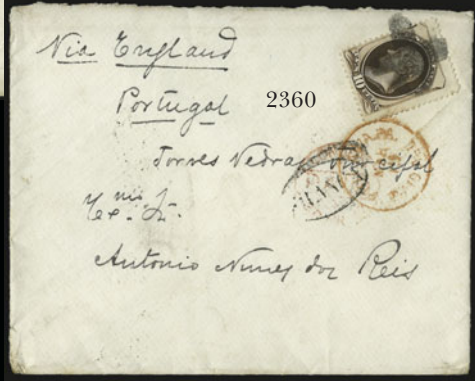 Via England
Portugal
2360
Torres Vedras
Exmo. Sr.
Antonio Nunes dos Reis
10